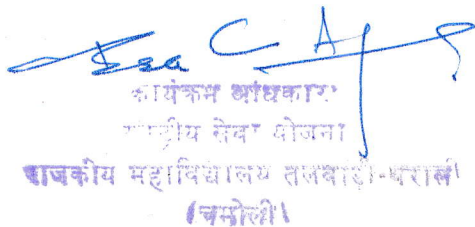 कार्यक्रम अधिकारी
सेवा योजना
राजकीय महाविद्यालय तलवाड़ी-थराली
(चमोली)